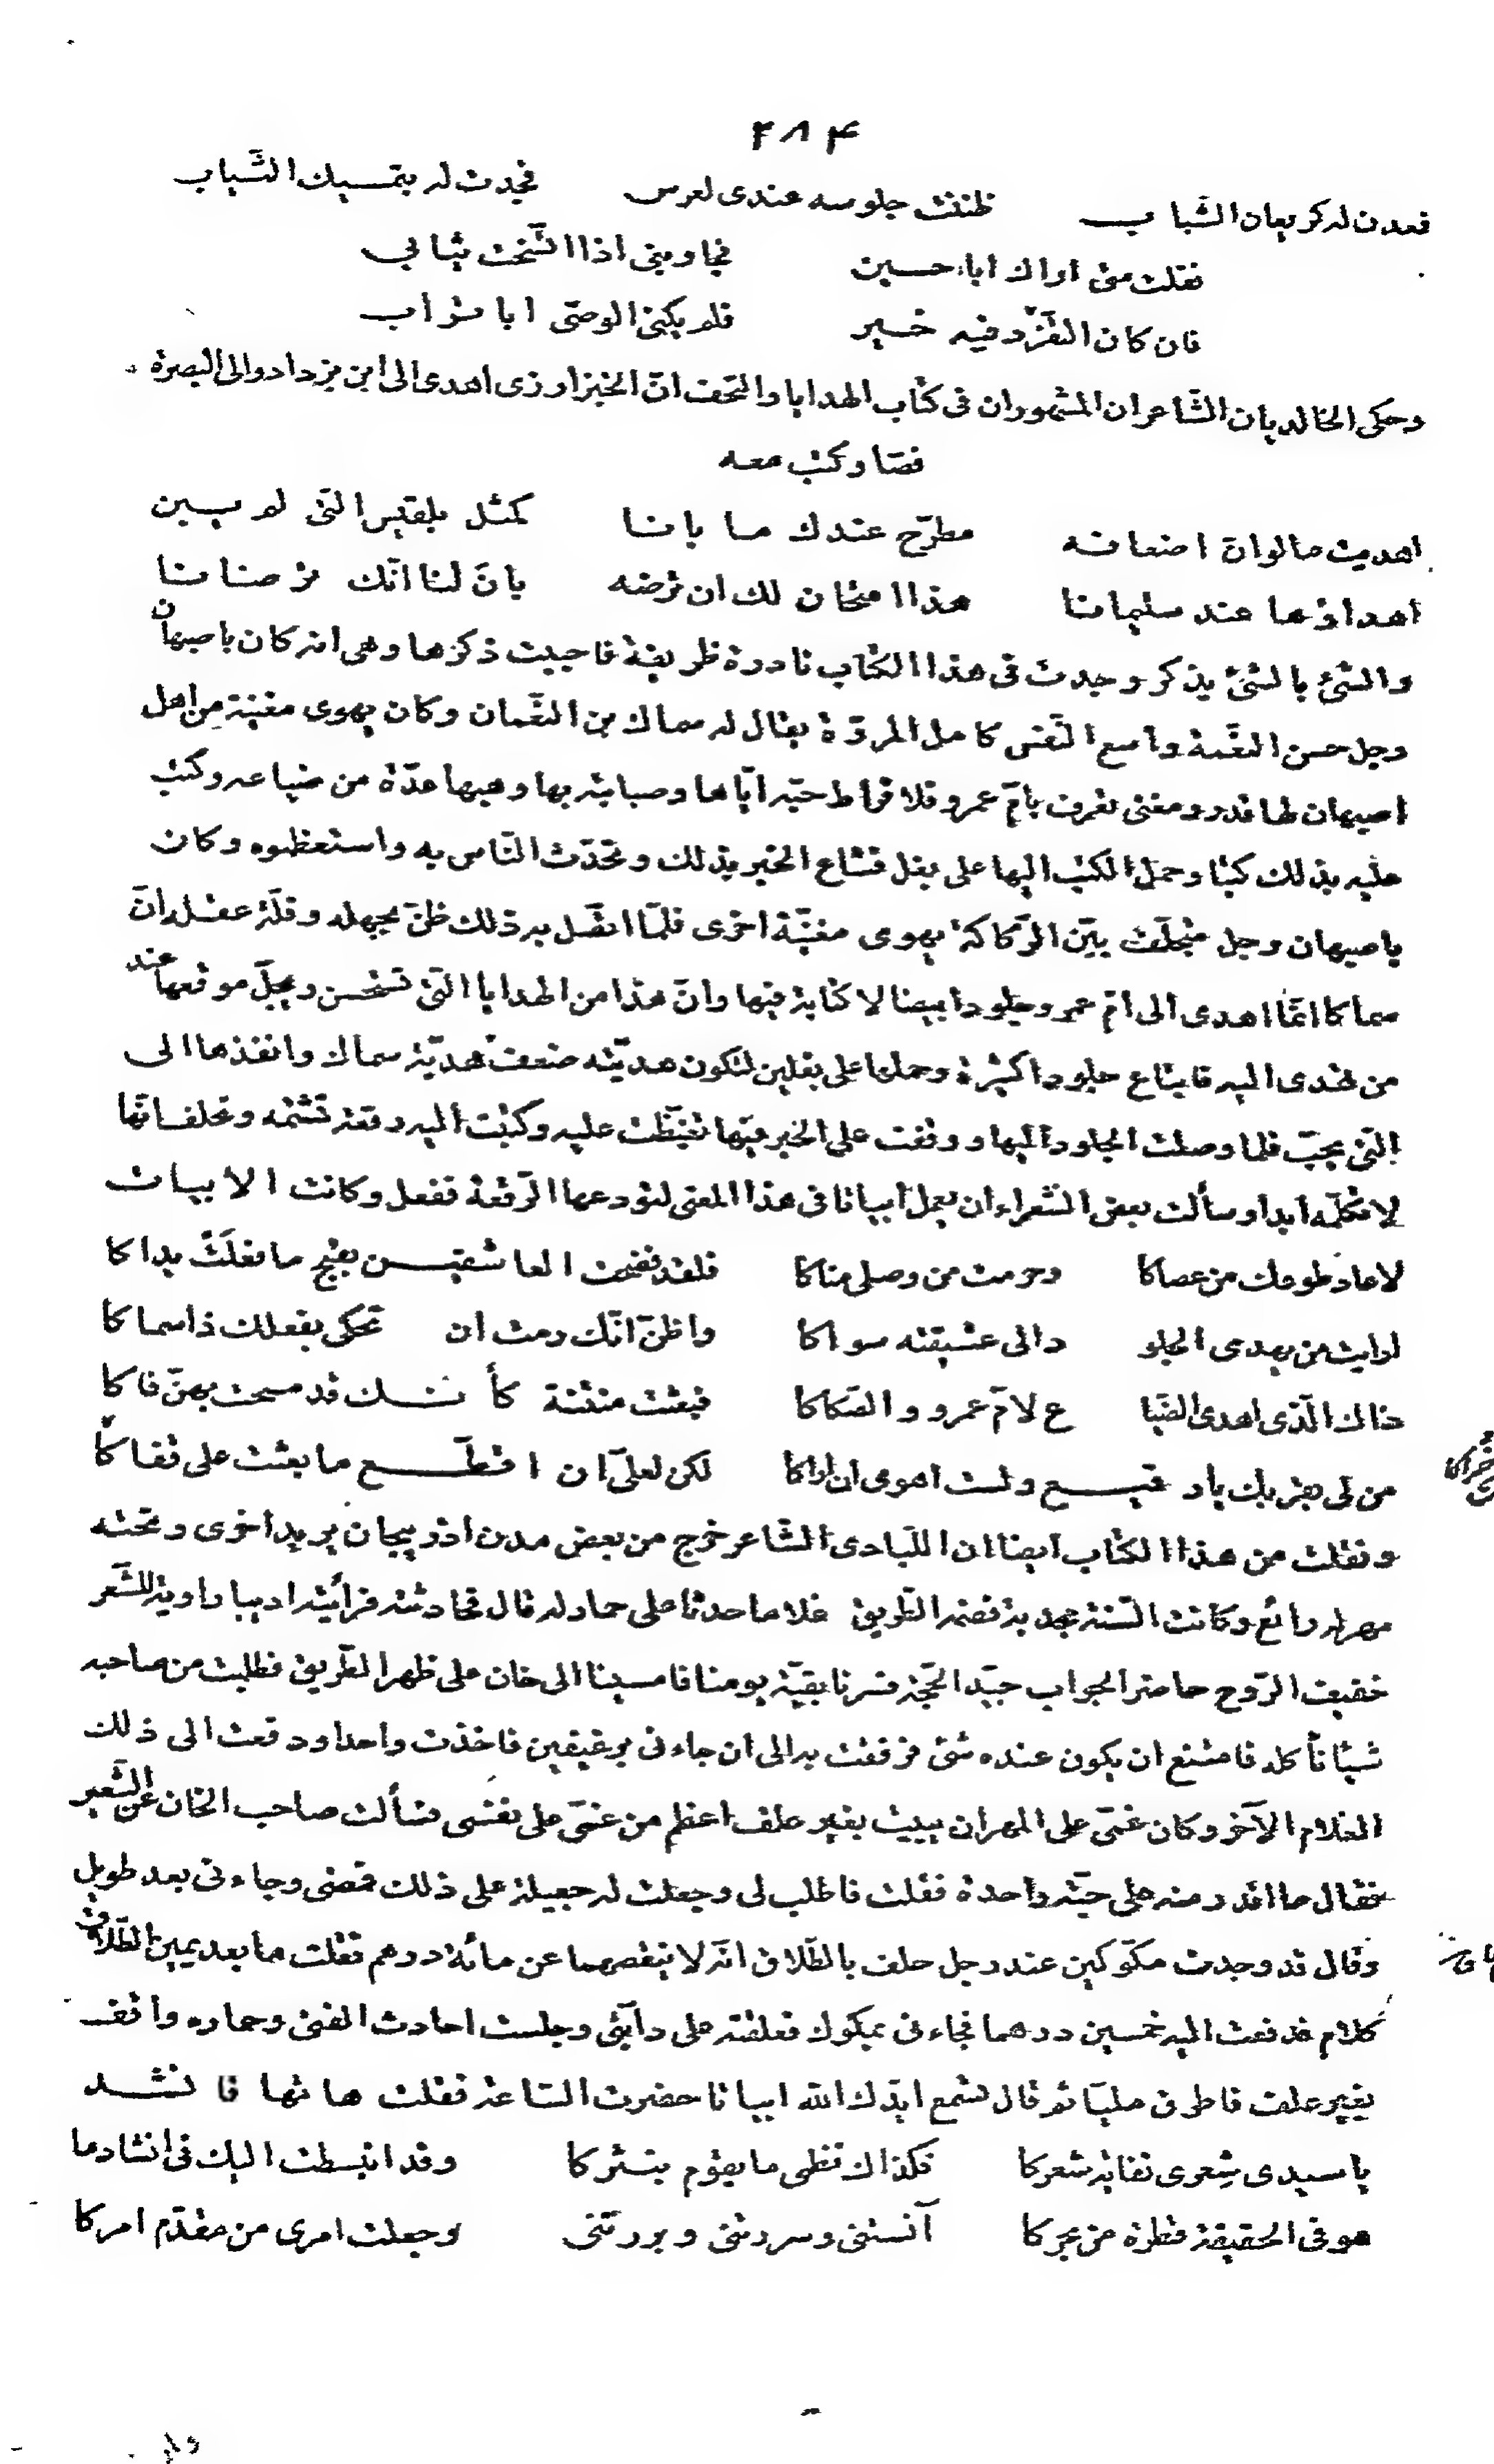 ۲۸۴
فعدت له كريعان الشباب ظننت جلوسه عندى لعرس فجدت له بتمسيك الثّياب
فقلت متى اراك ابا حسين فجاوبنى اذا اتّسخت ثيابي
فان كان التقزّز فيه خير فلم يكنى الوصىّ ابا تراب
وحكى الخالديان الشّاعران المشهوران فى كتاب الهدايا والتحف انّ الخبزارزى اهدى الى ابن يزداد والى البصرة
فصّا وكتب معه
اهديت ما لو انّ اضعافه مطرّح عندك ما بانا كمثل بلقيس الّتى لم يبين
اهداؤها عند سليمانا هذا امتحان لك ان ترضه بانَ لنا انّك ترضانا
والشئ بالشئ يذكر وجدت فى هذا الكتاب نادرة ظريفة فاحببت ذكرها وهى انه كان باصبهان
رجل حسن النعّمة واسع النّفس كامل المروّة يقال له سماك بن النّعمان وكان يهوى مغنية من اهل
اصبهان لها قدر ومعنى تعرف بامّ عمرو فلافراط حبّه ايّاها وصبابته بها وهبها عدّة من ضياعه وكتب
عليه بذلك كتبا وحمل الكتب اليها على بغل فشاع الخبر بذلك وتحدّث النّاس به واستعظموه وكان
باصبهان رجل متخلّف بيّن الرّكاكة يهوى مغنّية اخرى فلمّا اتّصل به ذلك ظنّ بجهله وقلّة عقله انّ
سماكا انّما اهدى الى امّ عمرو جلودا بيضا لا كتابة فيها وانّ هذا من الهدايا الّتى تستحسن ويجلّ موقعها عند
من تهدى اليه فابتاع جلودا كثيرة وحملها على بغلين لتكون هديّته ضعف هديّة سماك وانفذها الى
الّتى يحبّ فلما وصلت الجلود اليها ووقفت على الخبر فيها تغيّظت عليه وكتبت اليه رقعة تشتمه وتحلف انّها
لا تكلّمه ابدا وسألت بعض الشّعراء ان يعمل ابياتا فى هذا المعنى لتودعها الرّقعة ففعل وكانت الابيات
لا عاد طوعك من عصاكا وحرمت من وصلى مناكا فلقد فضحت العاشقيـن بقبح ما فعلَتْ يداكا
ارايت من يهدى الجلو دالى عشيقته سواكا واظنّ انّك رمت ان تحكى بفعلك ذا سماكا
ذاك الّذى اهدى الضّيا ع لامّ عمرو والصّكاكا فبعثت منتنة كأنـك قد مسحت بهنّ فاكا
من لى بقربك يا رقيـع ولست اهوى ان اراكا لكن لعلّى ان اقطّـع ما بعثت على قفاكا
ونقلت من هذا الكتاب ايضا ان اللّبادى الشّاعر خرج من بعض مدن اذربيجان يريد اخرى وتحته
مهر له رائع وكانت السّنة مجدبة فضمه الطّريق غلاما حدثا على حمار له قال فحادثته فرأيته اديبا راوية للشّعر
خفيف الرّوح حاضر الجواب جيّد الحجّة فسرنا بقيّة يومنا فامسينا الى خان على ظهر الطّريق فطلبت من صاحبه
شيئا نأكله فامتنع ان يكون عنده شئ فرفقت به الى ان جاءنى برغيفين فاخذت واحدا ودفعت الى ذلك
الغلام الآخر وكان غمّى على المهر ان يبيت بغير علف اعظم من غمّى على نفسى فسألت صاحب الخان عن الشّعير
فقال ما اقدر منه على حبّة واحدة فقلت فاطلب لى وجعلت له جعيلة على ذلك فمضى وجاءنى بعد طويل
وقال قد وجدت مكّوكين عند رجل حلف بالطّلاق انّه لا ينقصهما عن مائة درهم فقلت ما بعد يمين الطّلاق
كلام فدفعت اليه خمسين درهما فجاءنى بمكّوك فعلقته على دابّتى وجلست احادث الفتى وحماره واقف
بغير علف فاطرق مليّا ثم قال تسمع ايّدك الله ابياتا حضرت السّاعة فقلت هاتها فانشـد
يا سيدى شِعرى نفاية شعركا فكذاك نظمى ما يقوم بنثركا وقد انبسطت اليك فى انشاد ما
هو فى الحقيقة قطرة من بحركا آنستنى وسررتنى وبررتنى وجعلت امرى من مقدّم امركا